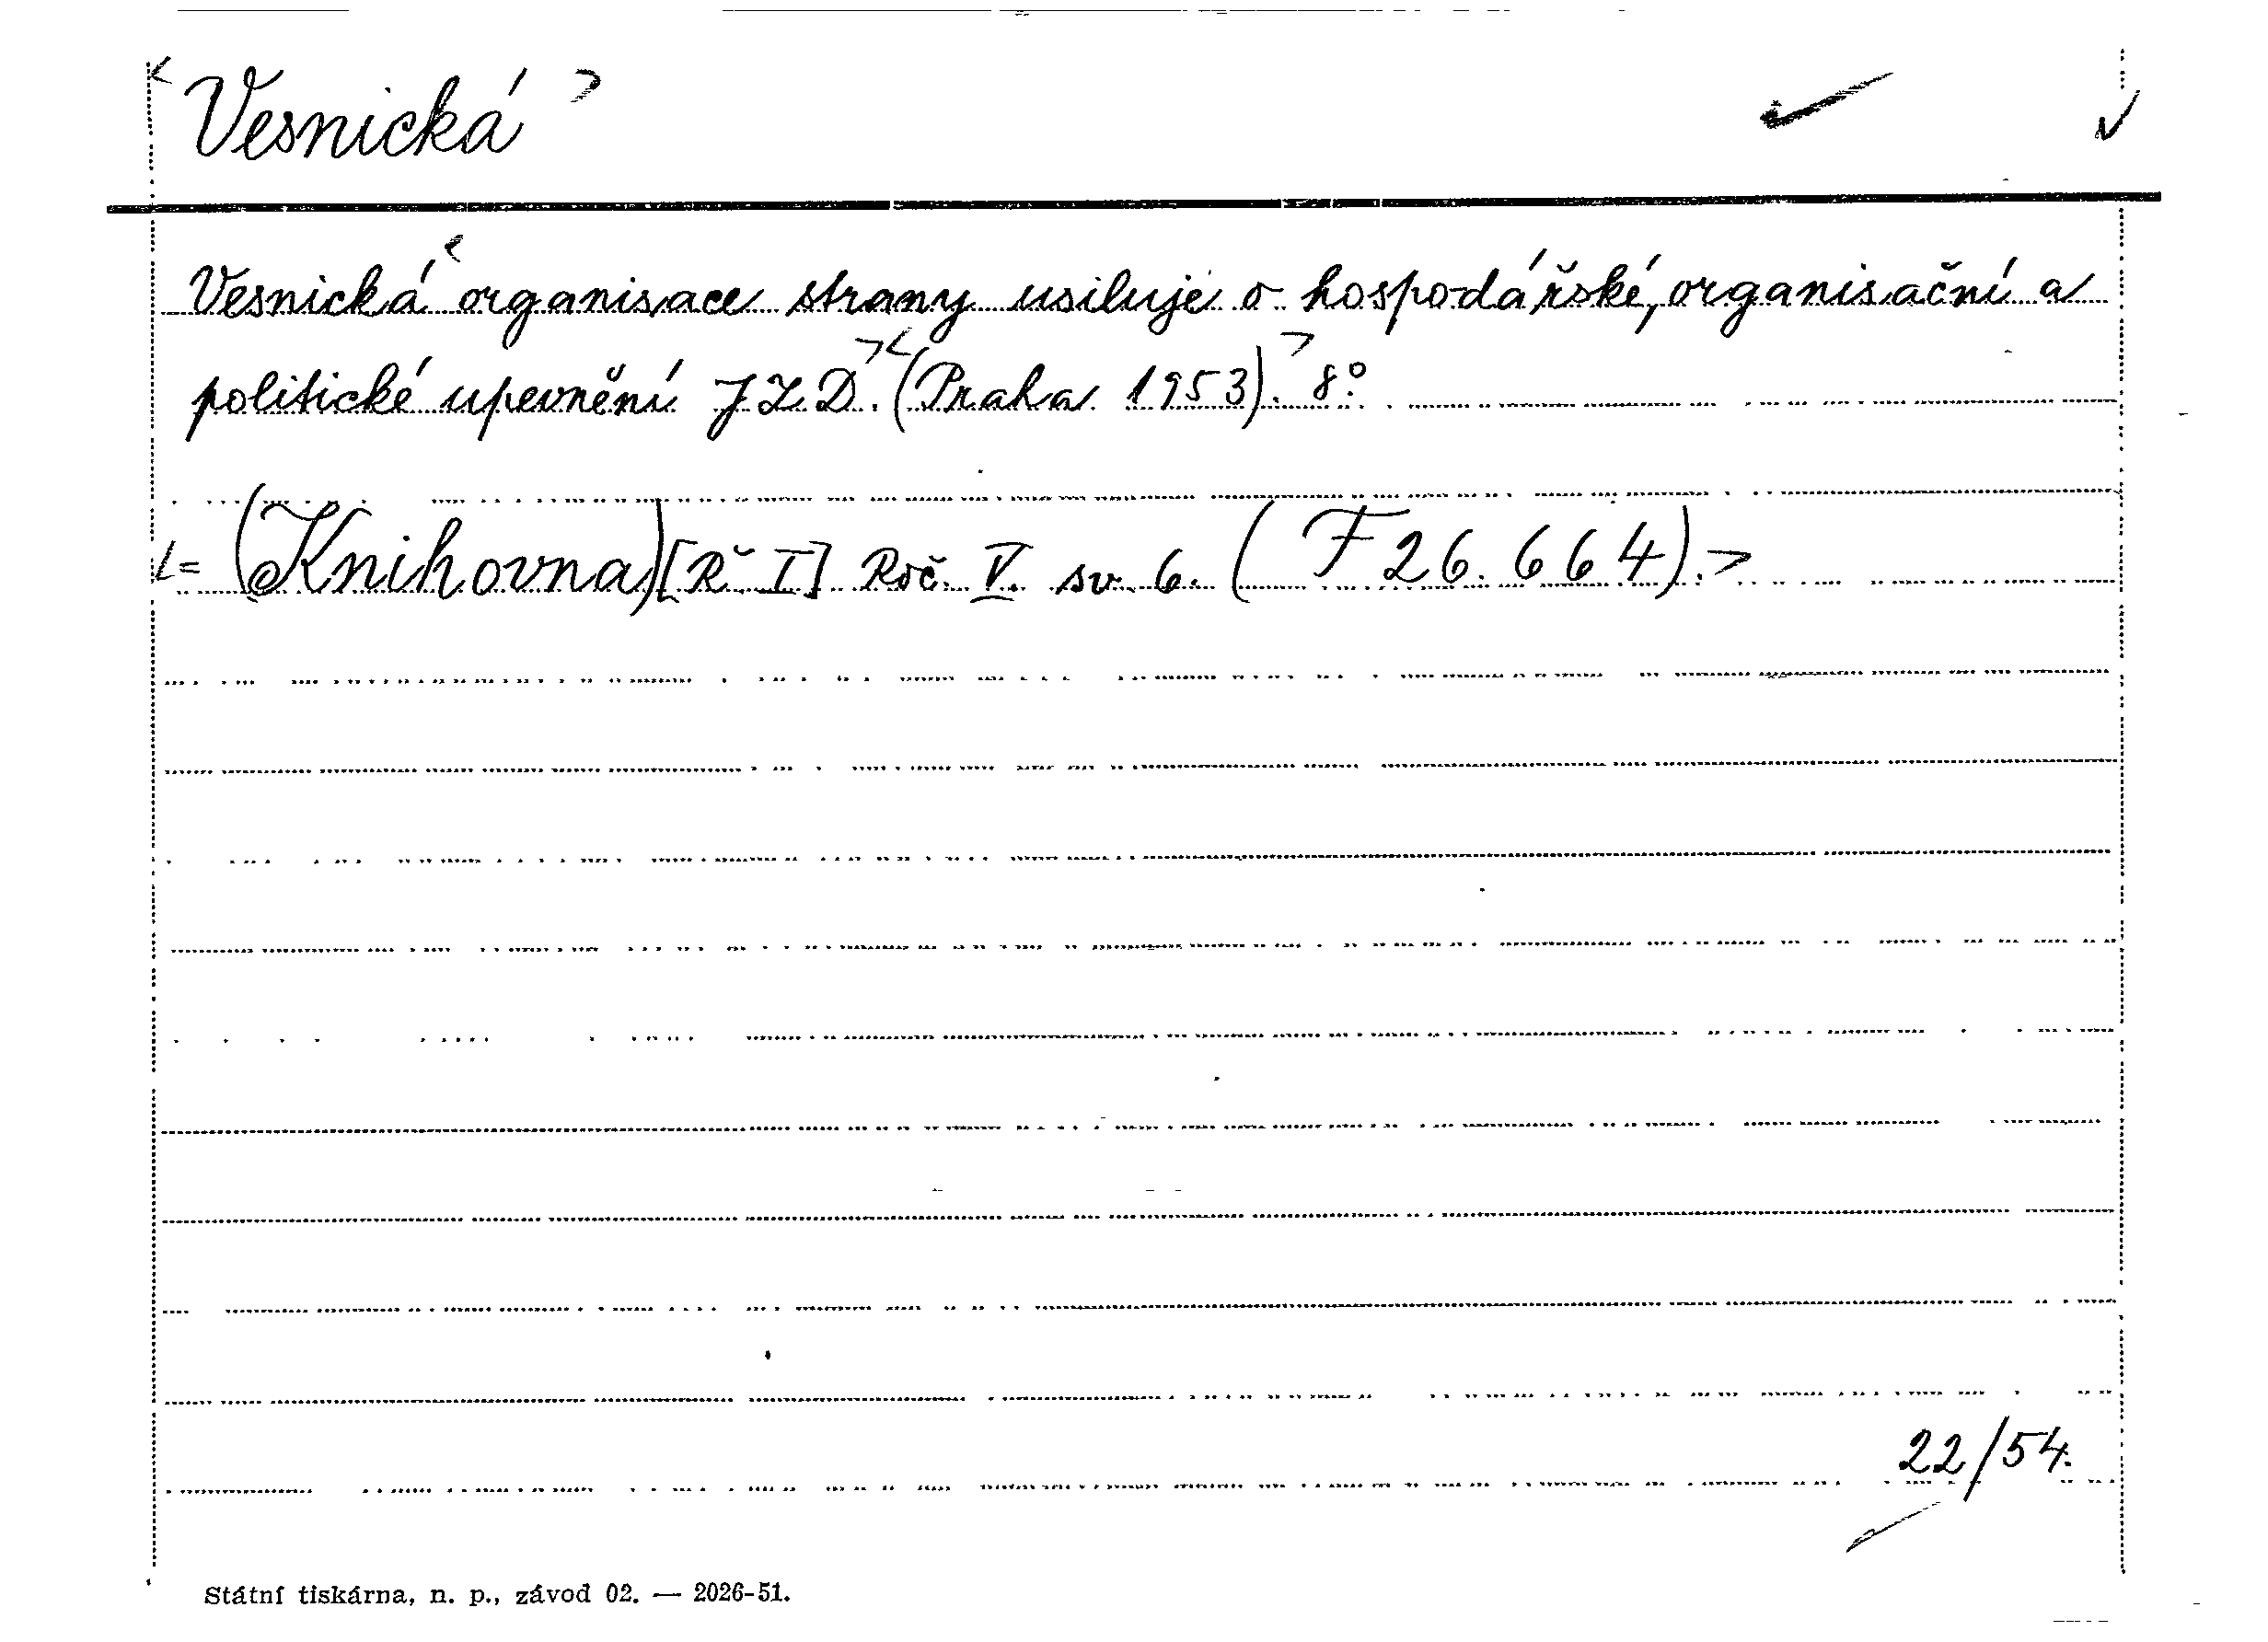 < Vesnická >
Vesnická < organisace strany usiluje o hospodářské, organisační a
politické upevnění JZD. >< (Praha 1953). > 8°.
<= (Knihovna) [Ř I] Roč. V. sv. 6. (F 26.664). >
22/54.
Státní tiskárna, n. p., závod 02. — 2026-51.